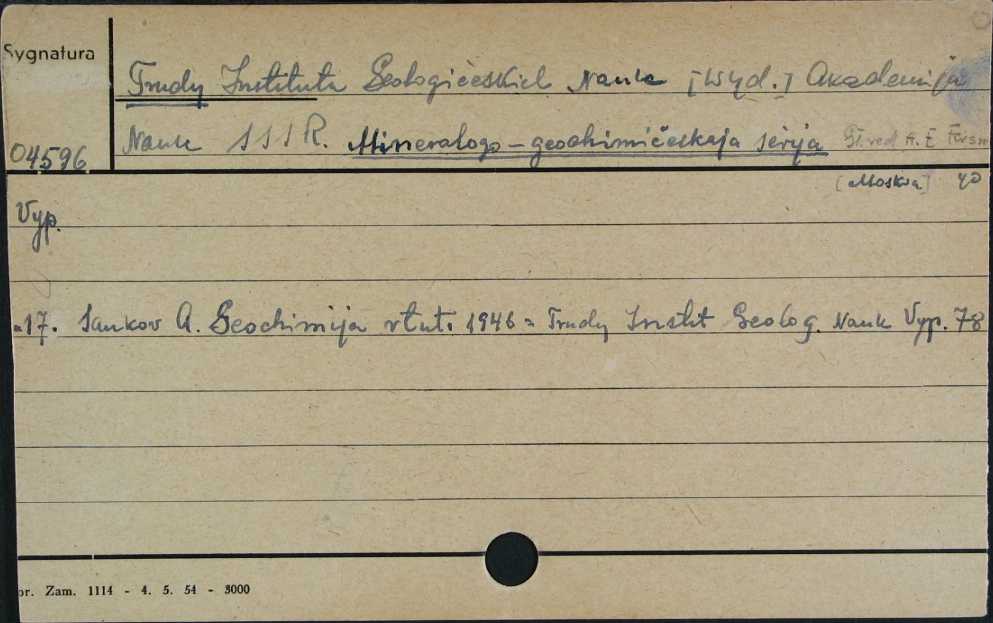 Sygnatura
Trudy Instituta Geologičeskich Nauk [Wyd.] Akademija
04596 Nauk SSSR. Mineralogo-geochimičeskaja serija Gł. red A. E Fersm
[Moskva] 40
Vyp.
17. Saukov A. Geochimija rtuti 1946 = Trudy Instit Geolog. Nauk Vyp. 78
or. Zam. 1114 - 4. 5. 54 - 3000